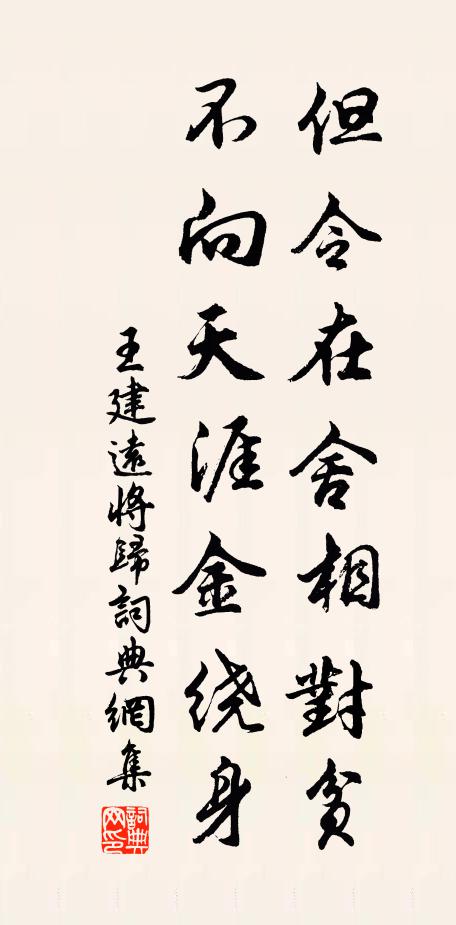 但令在舍相對貧
不向天涯金绕身
王建遠將歸詞典網集
詞典
网印